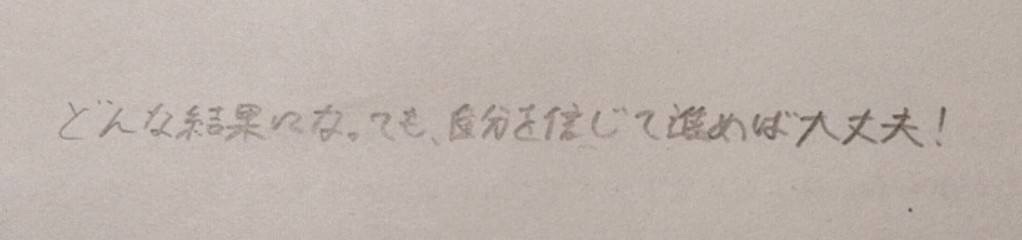 どんな結果になっても、自分を信じて進めば大丈夫！